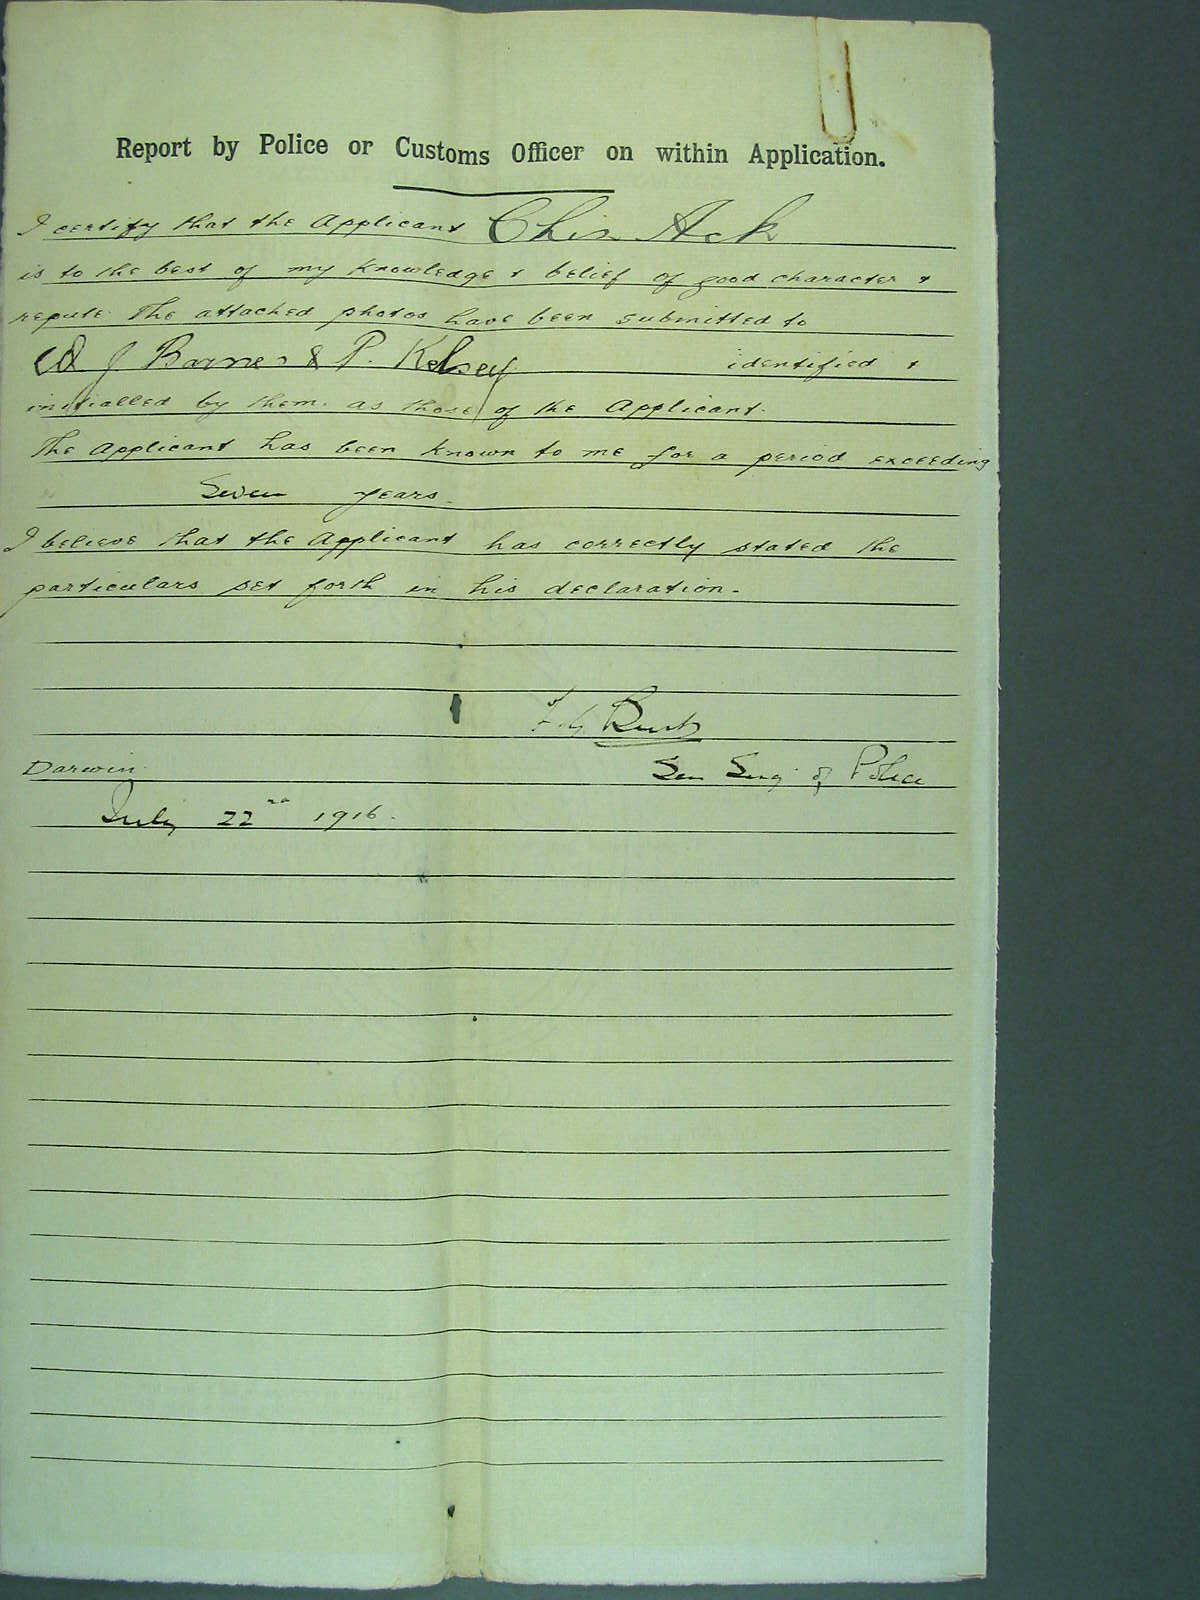 Report by Police or Customs Officer on within Application.
I certify that the Applicant Chin Ack
is to the best of my knowledge & belief of good character &
repute. The attached photos have been submitted to
J Barnes & P. Kelsey identified &
initialled by them. as those of the Applicant.
The Applicant has been known to me for a period exceeding
Seven years.
I believe that the Applicant has correctly stated the
particulars set forth in his declaration.
Darwin. of Police
July 22nd 1916.